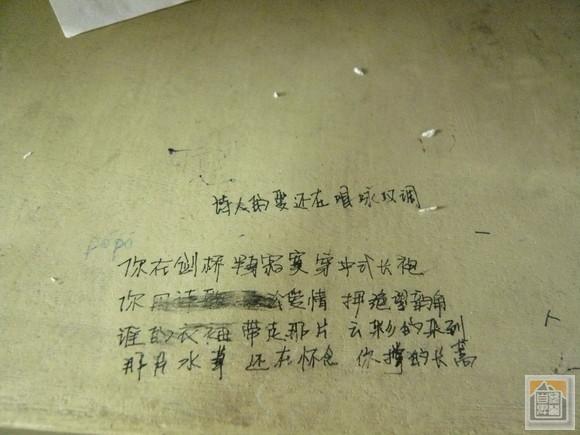 诗人的爱还在 咏叹调
popo
你在剑桥 霜寒穿中式长袍
你用 爱情 押绝望韵角
谁的衣袖 带走那片 云彩的来到
那片水草 还在怀念 你撑的长蒿